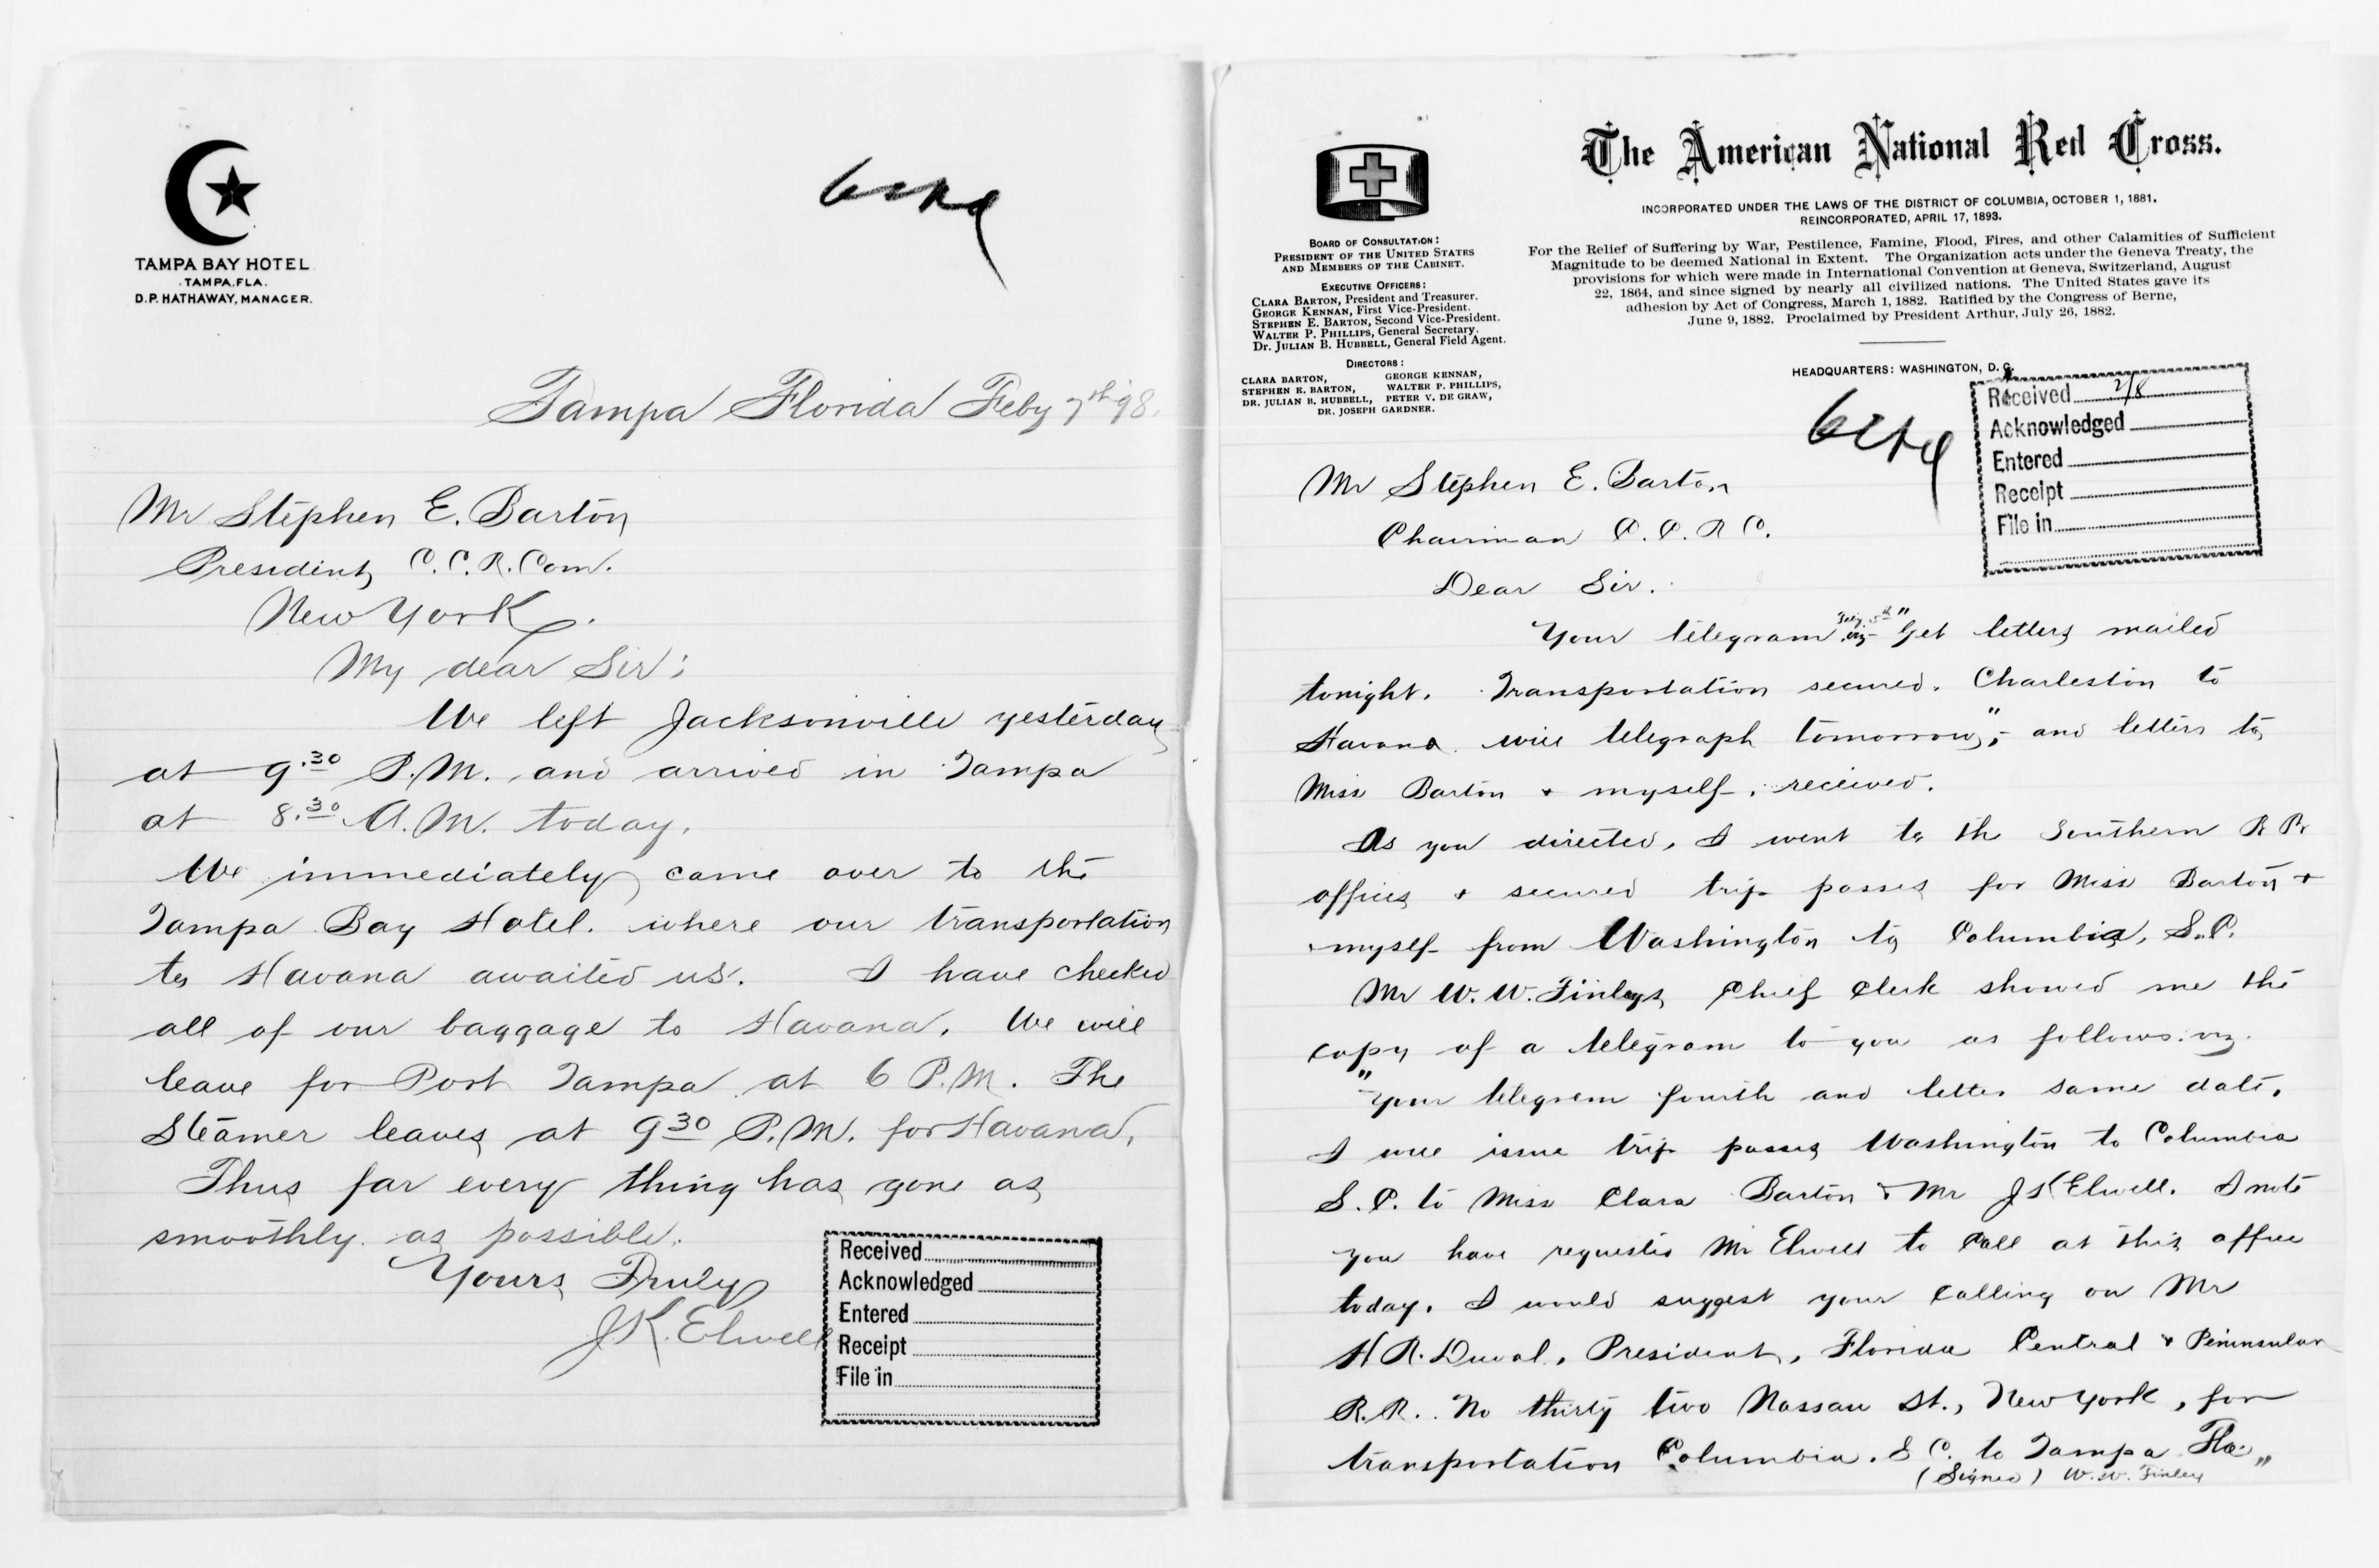 TAMPA BAY HOTEL
TAMPA, FLA.
D.P. HATHAWAY, MANAGER.
Tampa Florida Feby 7th 98.
Mr Stephen E. Barton
President C.C.R. Com.
New York.
My dear Sir:
We left Jacksonville yesterday
at 9.30 P.M. and arrived in Tampa
at 8.30 A.M. today.
We immediately came over to the
Tampa Bay Hotel. where our transportation
to Havana awaited us. I have checked
all of our baggage to Havana. We will
leave for Port Tampa at 6 P.M. The
Steamer leaves at 9 30 P.M. for Havana.
Thus far every thing has gone as
smoothly as possible.
Yours Truly
J.K. Elwell
Received
Acknowledged
Entered
Receipt
File in
The American National Red Cross.
INCORPORATED UNDER THE LAWS OF THE DISTRICT OF COLUMBIA, OCTOBER 1, 1881.
REINCORPORATED, APRIL 17, 1893.
For the Relief of Suffering by War, Pestilence, Famine, Flood, Fires, and other Calamities of Sufficient
Magnitude to be deemed National in Extent. The Organization acts under the Geneva Treaty, the
provisions for which were made in International Convention at Geneva, Switzerland, August
22, 1864, and since signed by nearly all civilized nations. The United States gave its
adhesion by Act of Congress, March 1, 1882. Ratified by the Congress of Berne,
June 9, 1882. Proclaimed by President Arthur, July 26, 1882.
HEADQUARTERS: WASHINGTON, D. C.
BOARD OF CONSULTATION:
PRESIDENT OF THE UNITED STATES
AND MEMBERS OF THE CABINET.
EXECUTIVE OFFICERS:
CLARA BARTON, President and Treasurer.
GEORGE KENNAN, First Vice-President.
STEPHEN E. BARTON, Second Vice-President.
WALTER P. PHILLIPS, General Secretary.
DR. JULIAN B. HUBBELL, General Field Agent.
DIRECTORS:
CLARA BARTON, GEORGE KENNAN,
STEPHEN E. BARTON, WALTER P. PHILLIPS,
DR. JULIAN B. HUBBELL, PETER V. DE GRAW,
DR. JOSEPH GARDNER.
Received 2/8
Acknowledged
Entered
Receipt
File in
Mr Stephen E. Barton
Chairman C.C.R C.
Dear Sir.
Your telegram Feby. 5th viz "Get letters mailed
tonight. Transportation secured. Charleston to
Havana will telegraph tomorrow", and letters to
Miss Barton & myself, received.
As you directed, I went to the Southern R R
offices & secured trip passes for Miss Barton &
myself from Washington to Columbia, S.C.
Mr W. W. Finleys Chief Clerk showed me the
copy of a telegram to you as follows: viz.
"Your telegram fourth and letter same date.
I will issue trip passes Washington to Columbia
S.C. to Miss Clara Barton & Mr J K Elwell. I note
you have requested Mr Elwell to call at this office
today. I would suggest your calling on Mr
H R. Duval, President, Florida Central & Peninsular
R.R. No thirty two Nassau St., New York, for
transportation Columbia. S C. to Tampa Fla."
(Signed) W. W. Finley